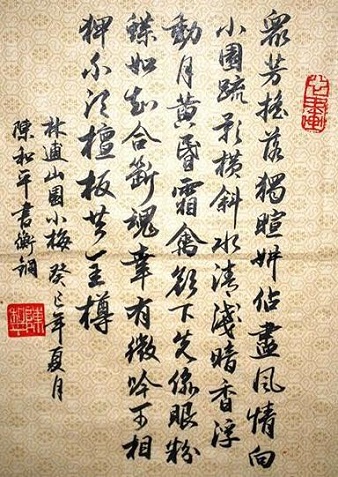 眾芳搖落獨暄妍佔盡風情向
小園疏影橫斜水清淺暗香浮
動月黃昏霜禽欲下先偷眼粉
蝶如知合斷魂幸有微吟可相
狎不須檀板共金樽
林逋山園小梅 癸巳年夏月
陳和平書衡鋼